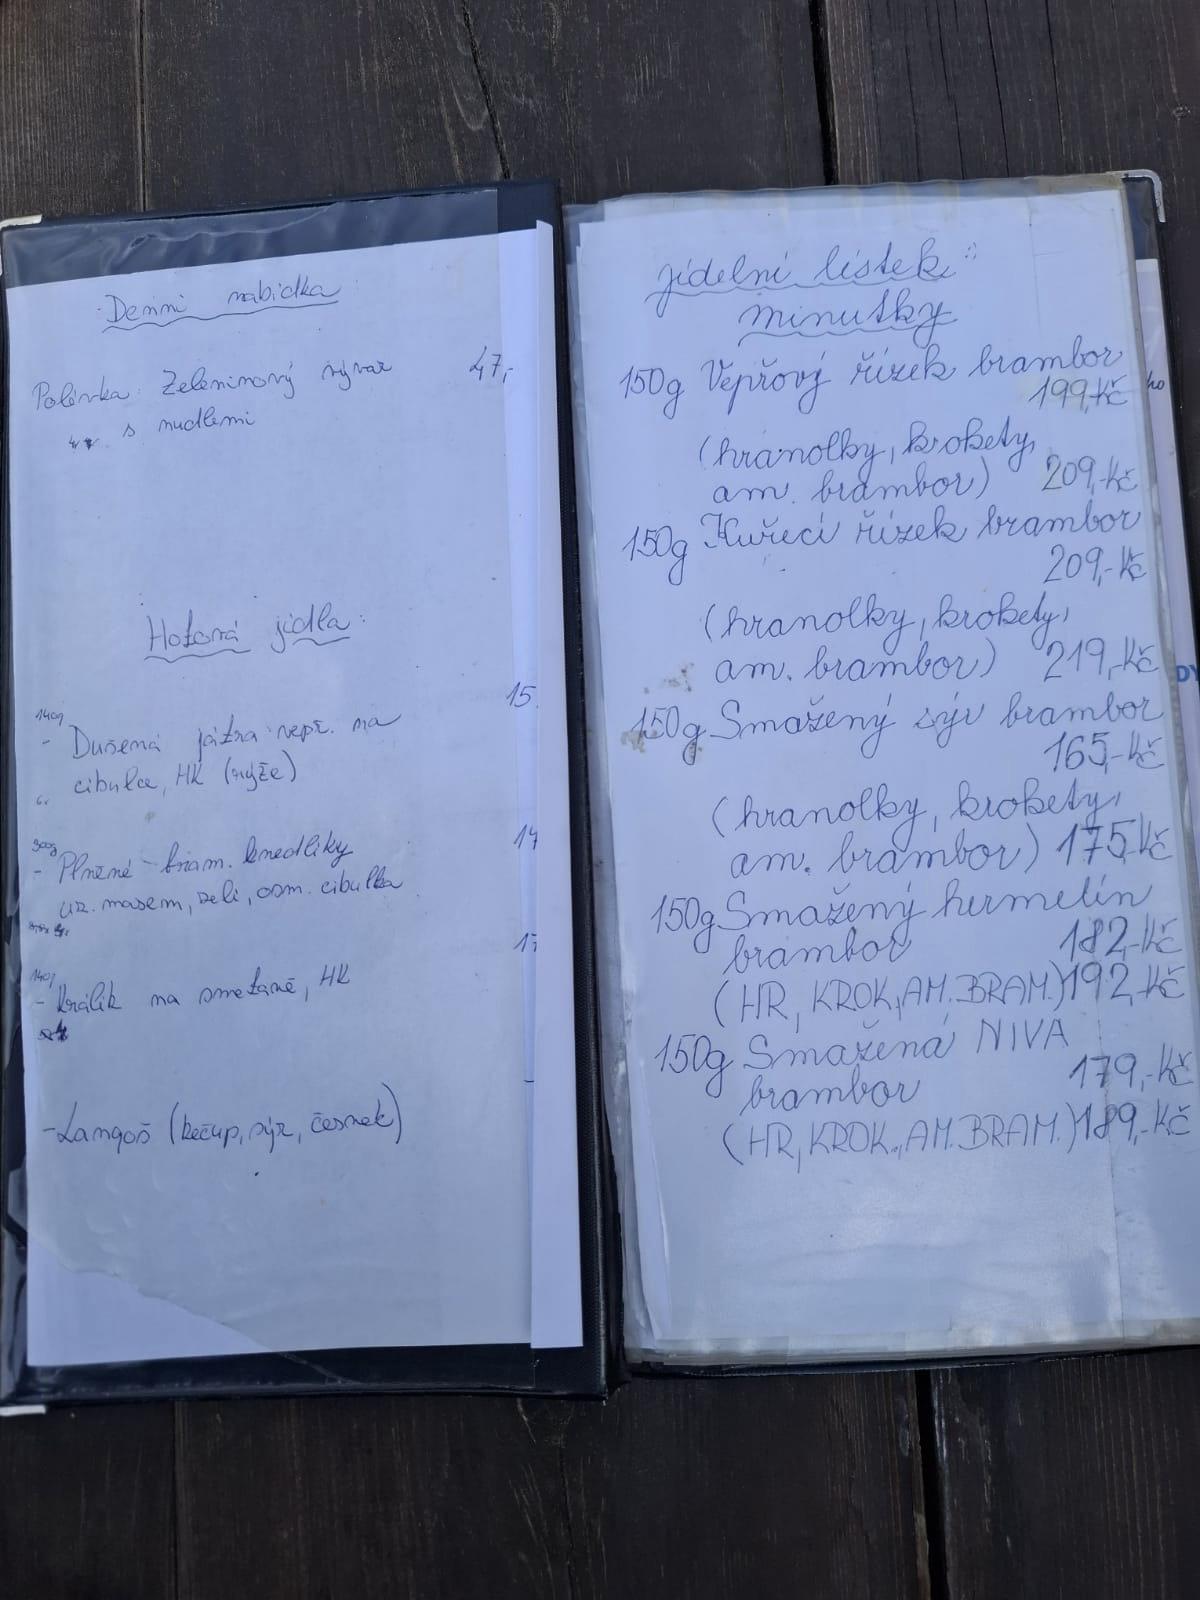 Denní nabídka
Polévka: Zeleninový vývar 47,-
s nudlemi
Hotová jídla:
15
140g
- Dušená játra vepř. na
cibulce, HK (rýže)
300g 14
- Plněné bram. knedlíky
uz. masem, zelí, osm. cibulka
17
140g
- Králík na smetaně, HK
- Langoš (kečup, sýr, česnek)
jídelní lístek:
minutky
150g Vepřový řízek brambor
199,-Kč
(hranolky, krokety,
am. brambor) 209,-Kč
150g Kuřecí řízek brambor
209,-Kč
(hranolky, krokety,
am. brambor) 219,-Kč
150g Smažený sýr brambor
165,-Kč
(hranolky, krokety,
am. brambor) 175,-Kč
150g Smažený hermelín
brambor 182,-Kč
(HR, KROK, AM. BRAM.) 192,-Kč
150g Smažená NIVA
brambor 179,-Kč
(HR, KROK., AM. BRAM.) 189,-Kč
ho
DY